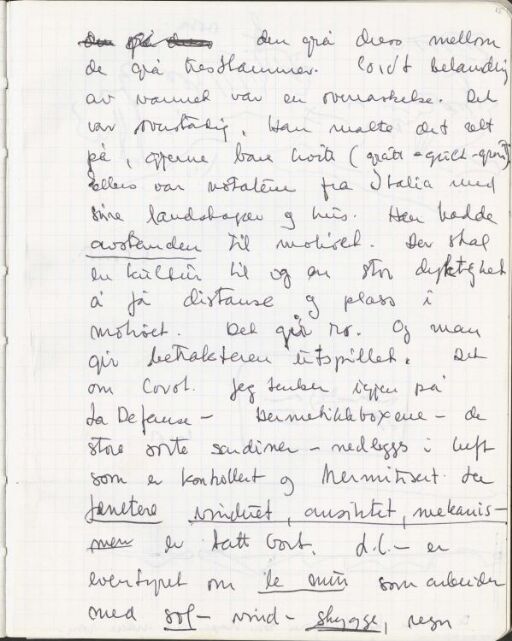 ~~den grå dress~~ den grå dress mellom
de grå trestammer. Corots behandling
av vannet var en overraskelse. Det
var overstadig. Han malte det rett
på, gjerne bare hvitt (grått-gult-grønt)
ellers var notatene fra Italia med
sine landskaper og hus. Han hadde
avstanden til motivet. Der skal
en kultur til og en stor dyktighet
å få distanse og plass i
motivet. Det gir ro. Og man
gir betrakteren utspillet. Det
om Corot. Jeg tenker igjen på
La Defense – hermetikkboxene – de
store sorte sardiner – nedlegges i luft
som er kontrollert og hermetisert. La
fenetere vinduet, ansiktet, mekanis-
men er tatt bort. d.C. – er
eventyret om le mur som arbeider
med sol – vind – skygge, regn